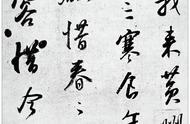 我来黄州
三寒食年
欲惜春〻
容惜今